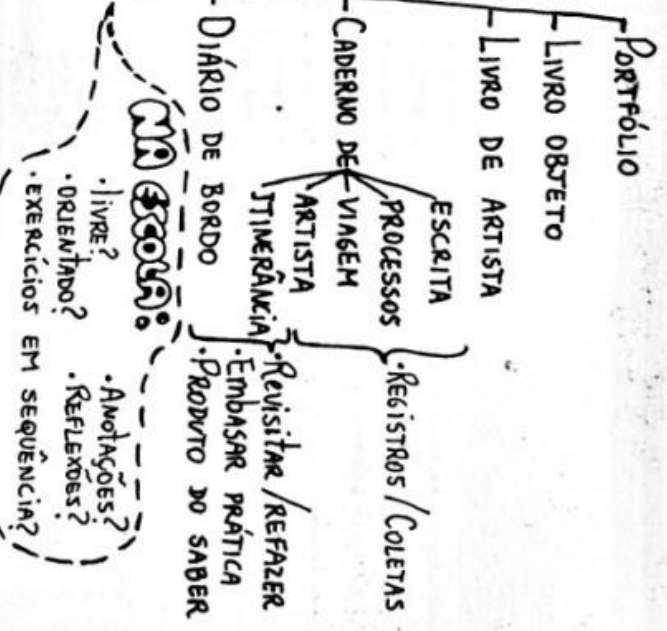 PORTFÓLIO
LIVRO OBJETO
LIVRO DE ARTISTA
CADERNO DE
ESCRITA
PROCESSOS
VIAGEM
ARTISTA
ITINERÂNCIA
• REGISTROS / COLETAS
DIÁRIO DE BORDO
• Revisitar / REFAZER
• Embasar PRÁTICA
• PRODUTO DO SABER
NA ESCOLA:
• livre?
• ORIENTADO?
• EXERCÍCIOS EM SEQUÊNCIA?
• ANOTAÇÕES?
• REFLEXOES?